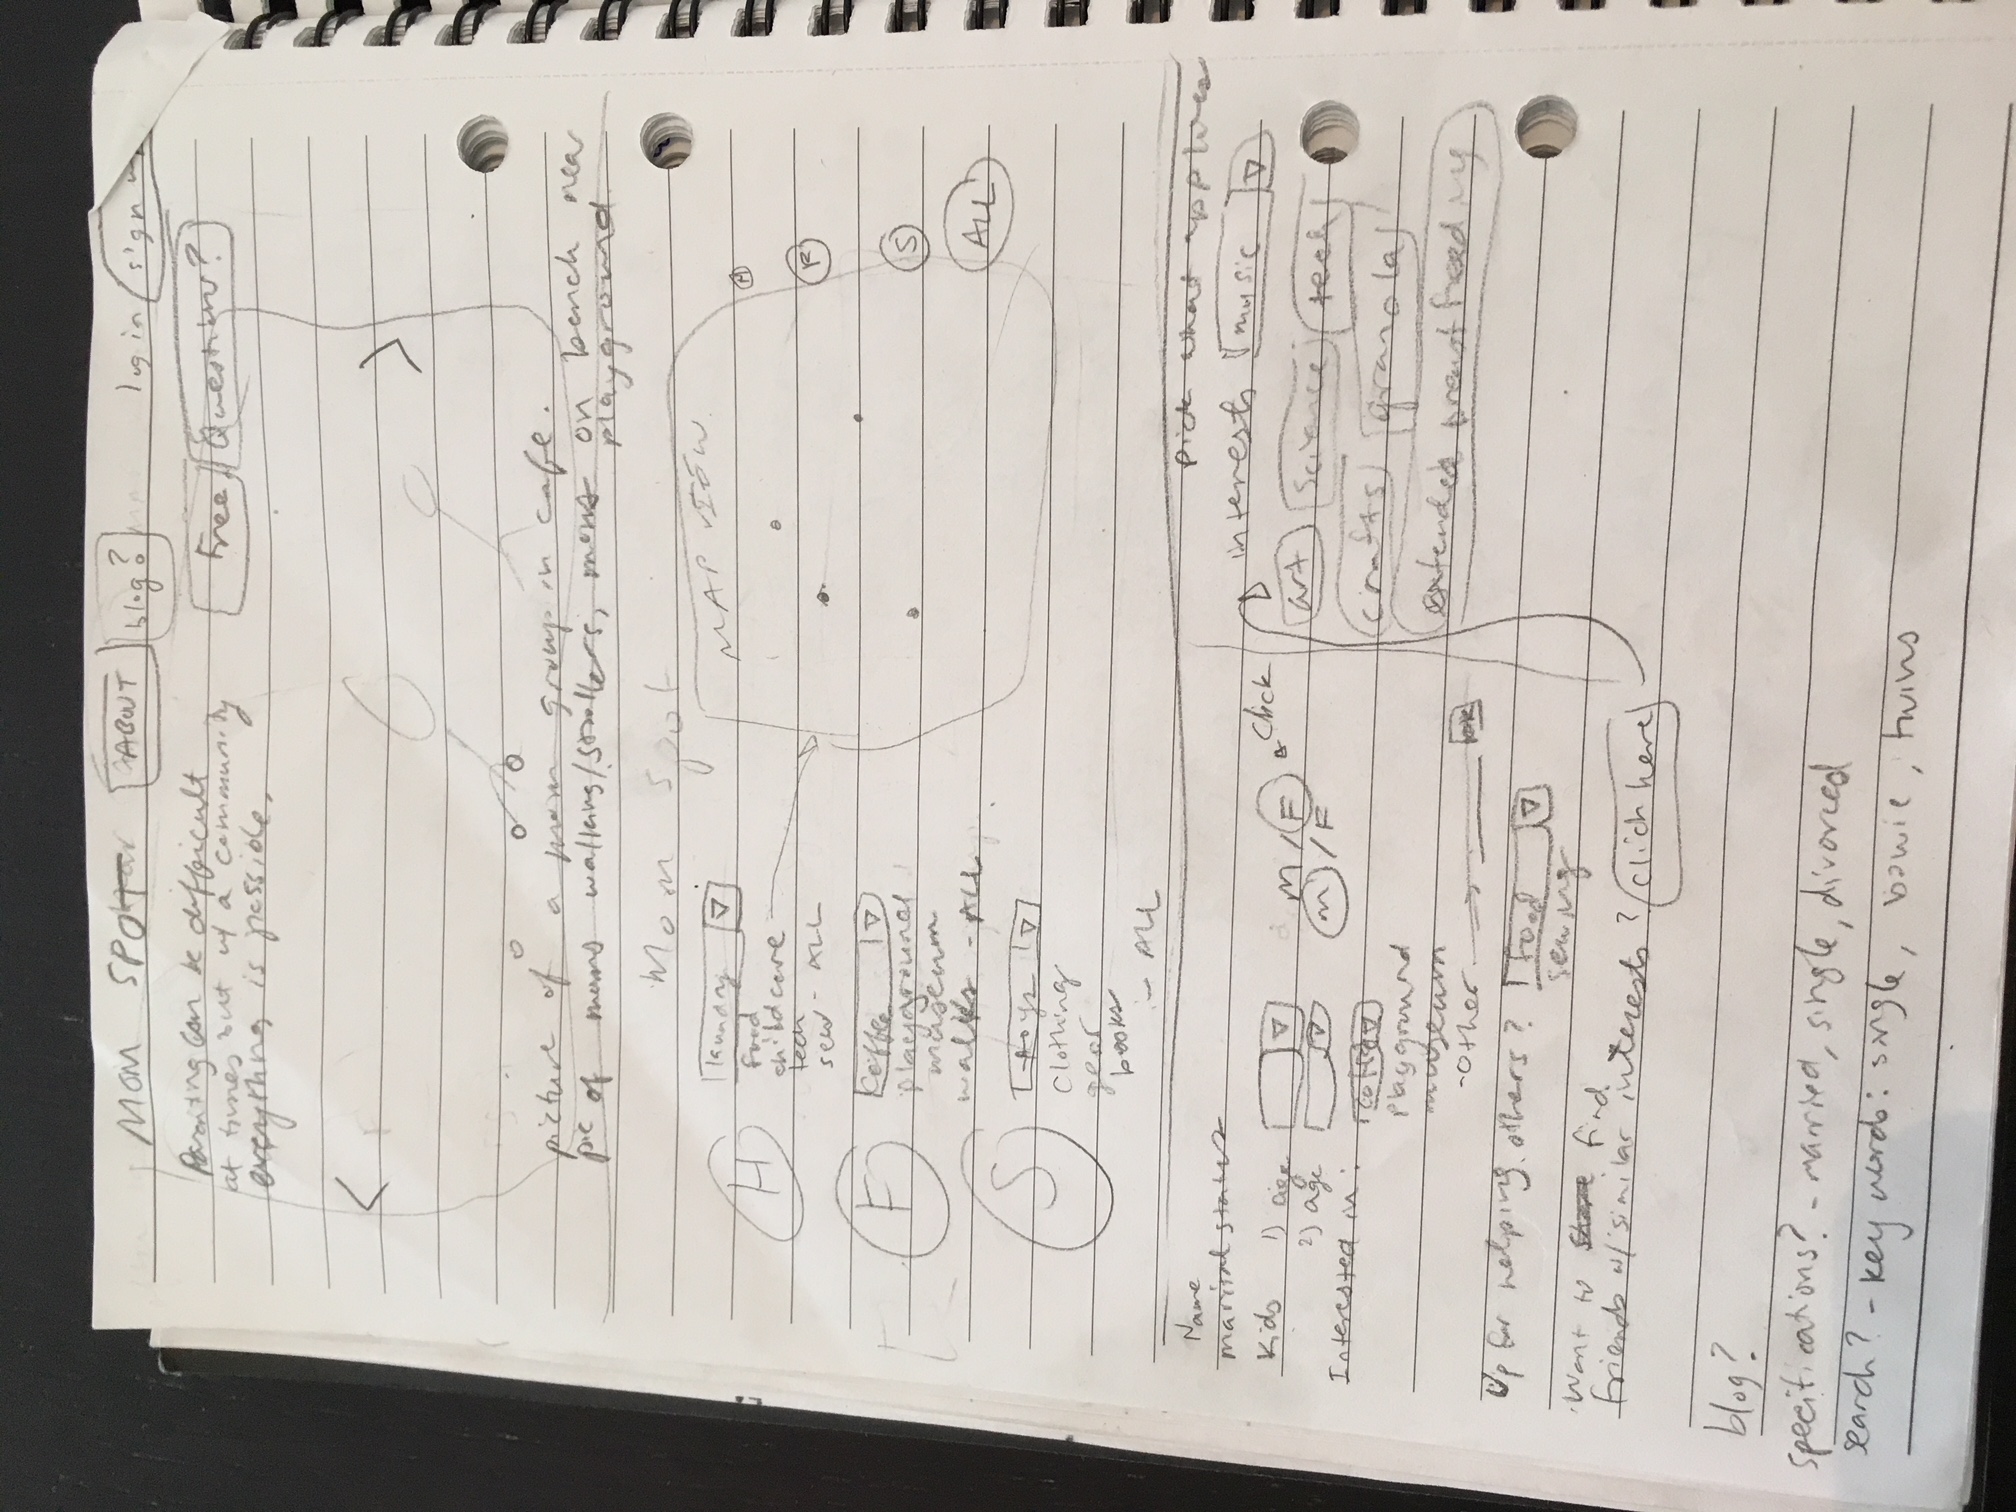 MOM SPOT ABOUT blog? log in sign up
Parenting can be difficult
at times but w/ a community
everything is possible.
Free Questions?
< >
picture of a mom group in cafe.
pic of moms walking/strollers, moms on bench near
playground
Mom Spot
MAP VIEW
H
laundry
food
childcare
tech
sew - ALL
F
Coffee
playground
museum
walks - ALL
S
toys
clothing
gear
books
- ALL
H
F
S
ALL
Name
marital status
Kids 1) age M / F Click
2) age M / F
Interested in:
coffee
playground
museum
-other
Up for helping others? food
sewing
Want to find
friends w/ similar interests? click here
pick what applies
interests music
art science tech
crafts granola
extended breast feeding
blog?
specifications? - married, single, divorced
search? - key words: single, bowie, twins